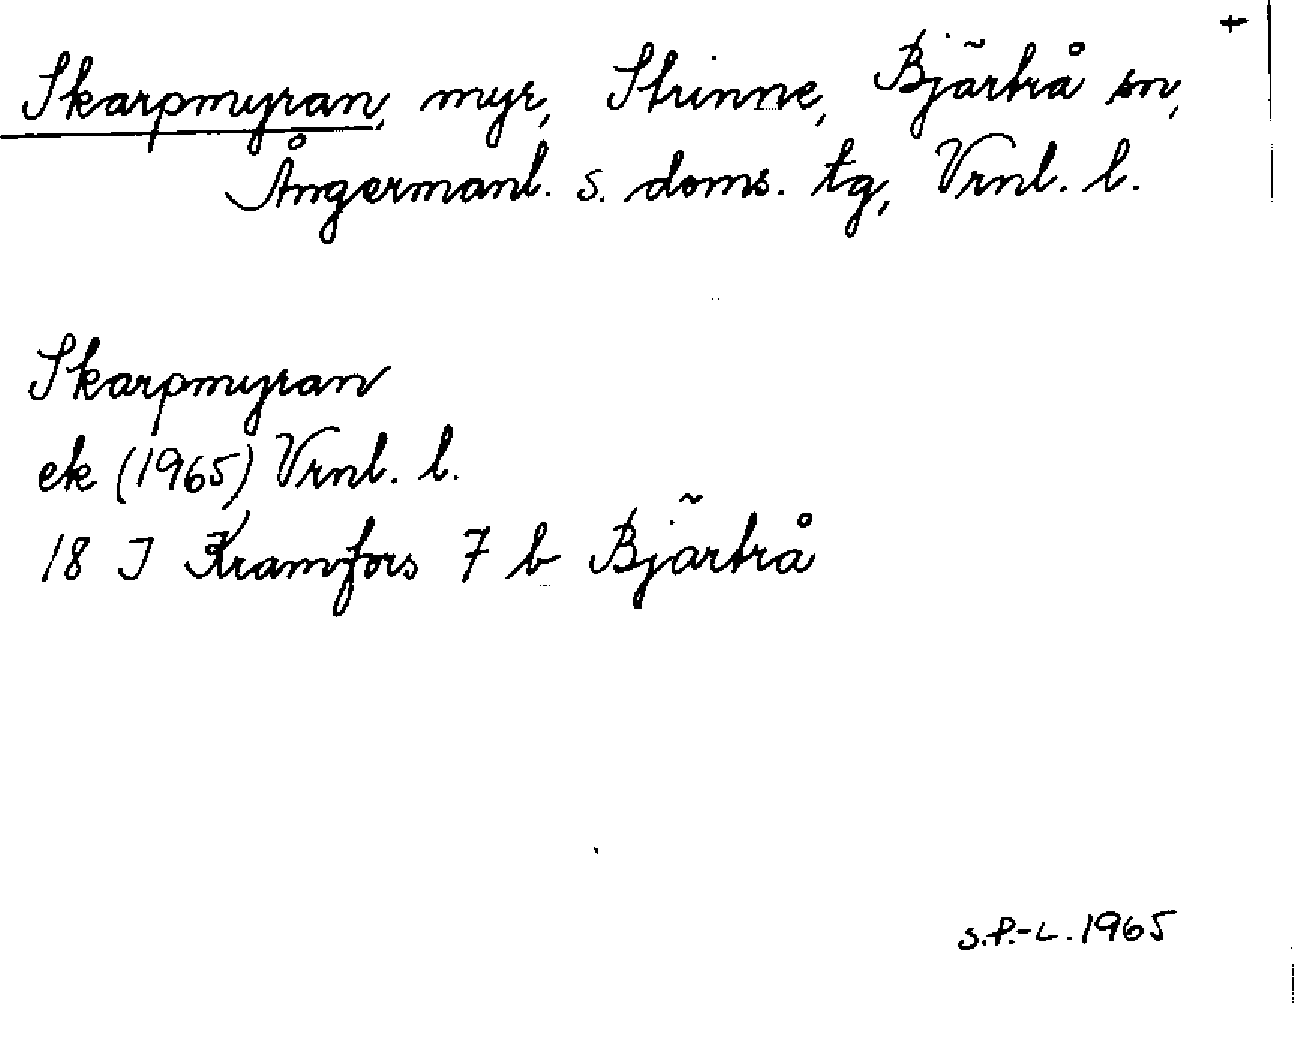 +
Skarpmyran, myr, Strinne, Bjärtrå sn,
Ångermanl. s. doms. tg, Vrnl. l.
Skarpmyran
ek (1965) Vrnl. l.
18 I Kramfors 7 b Bjärtrå
S.P.-L. 1965